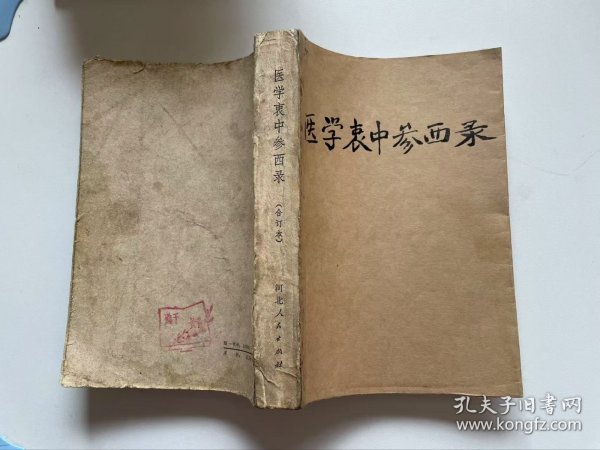 医学衷中参西录
医学衷中参西录
(合订本)
河北人民出版社
孔夫子旧书网
www.kongfz.com